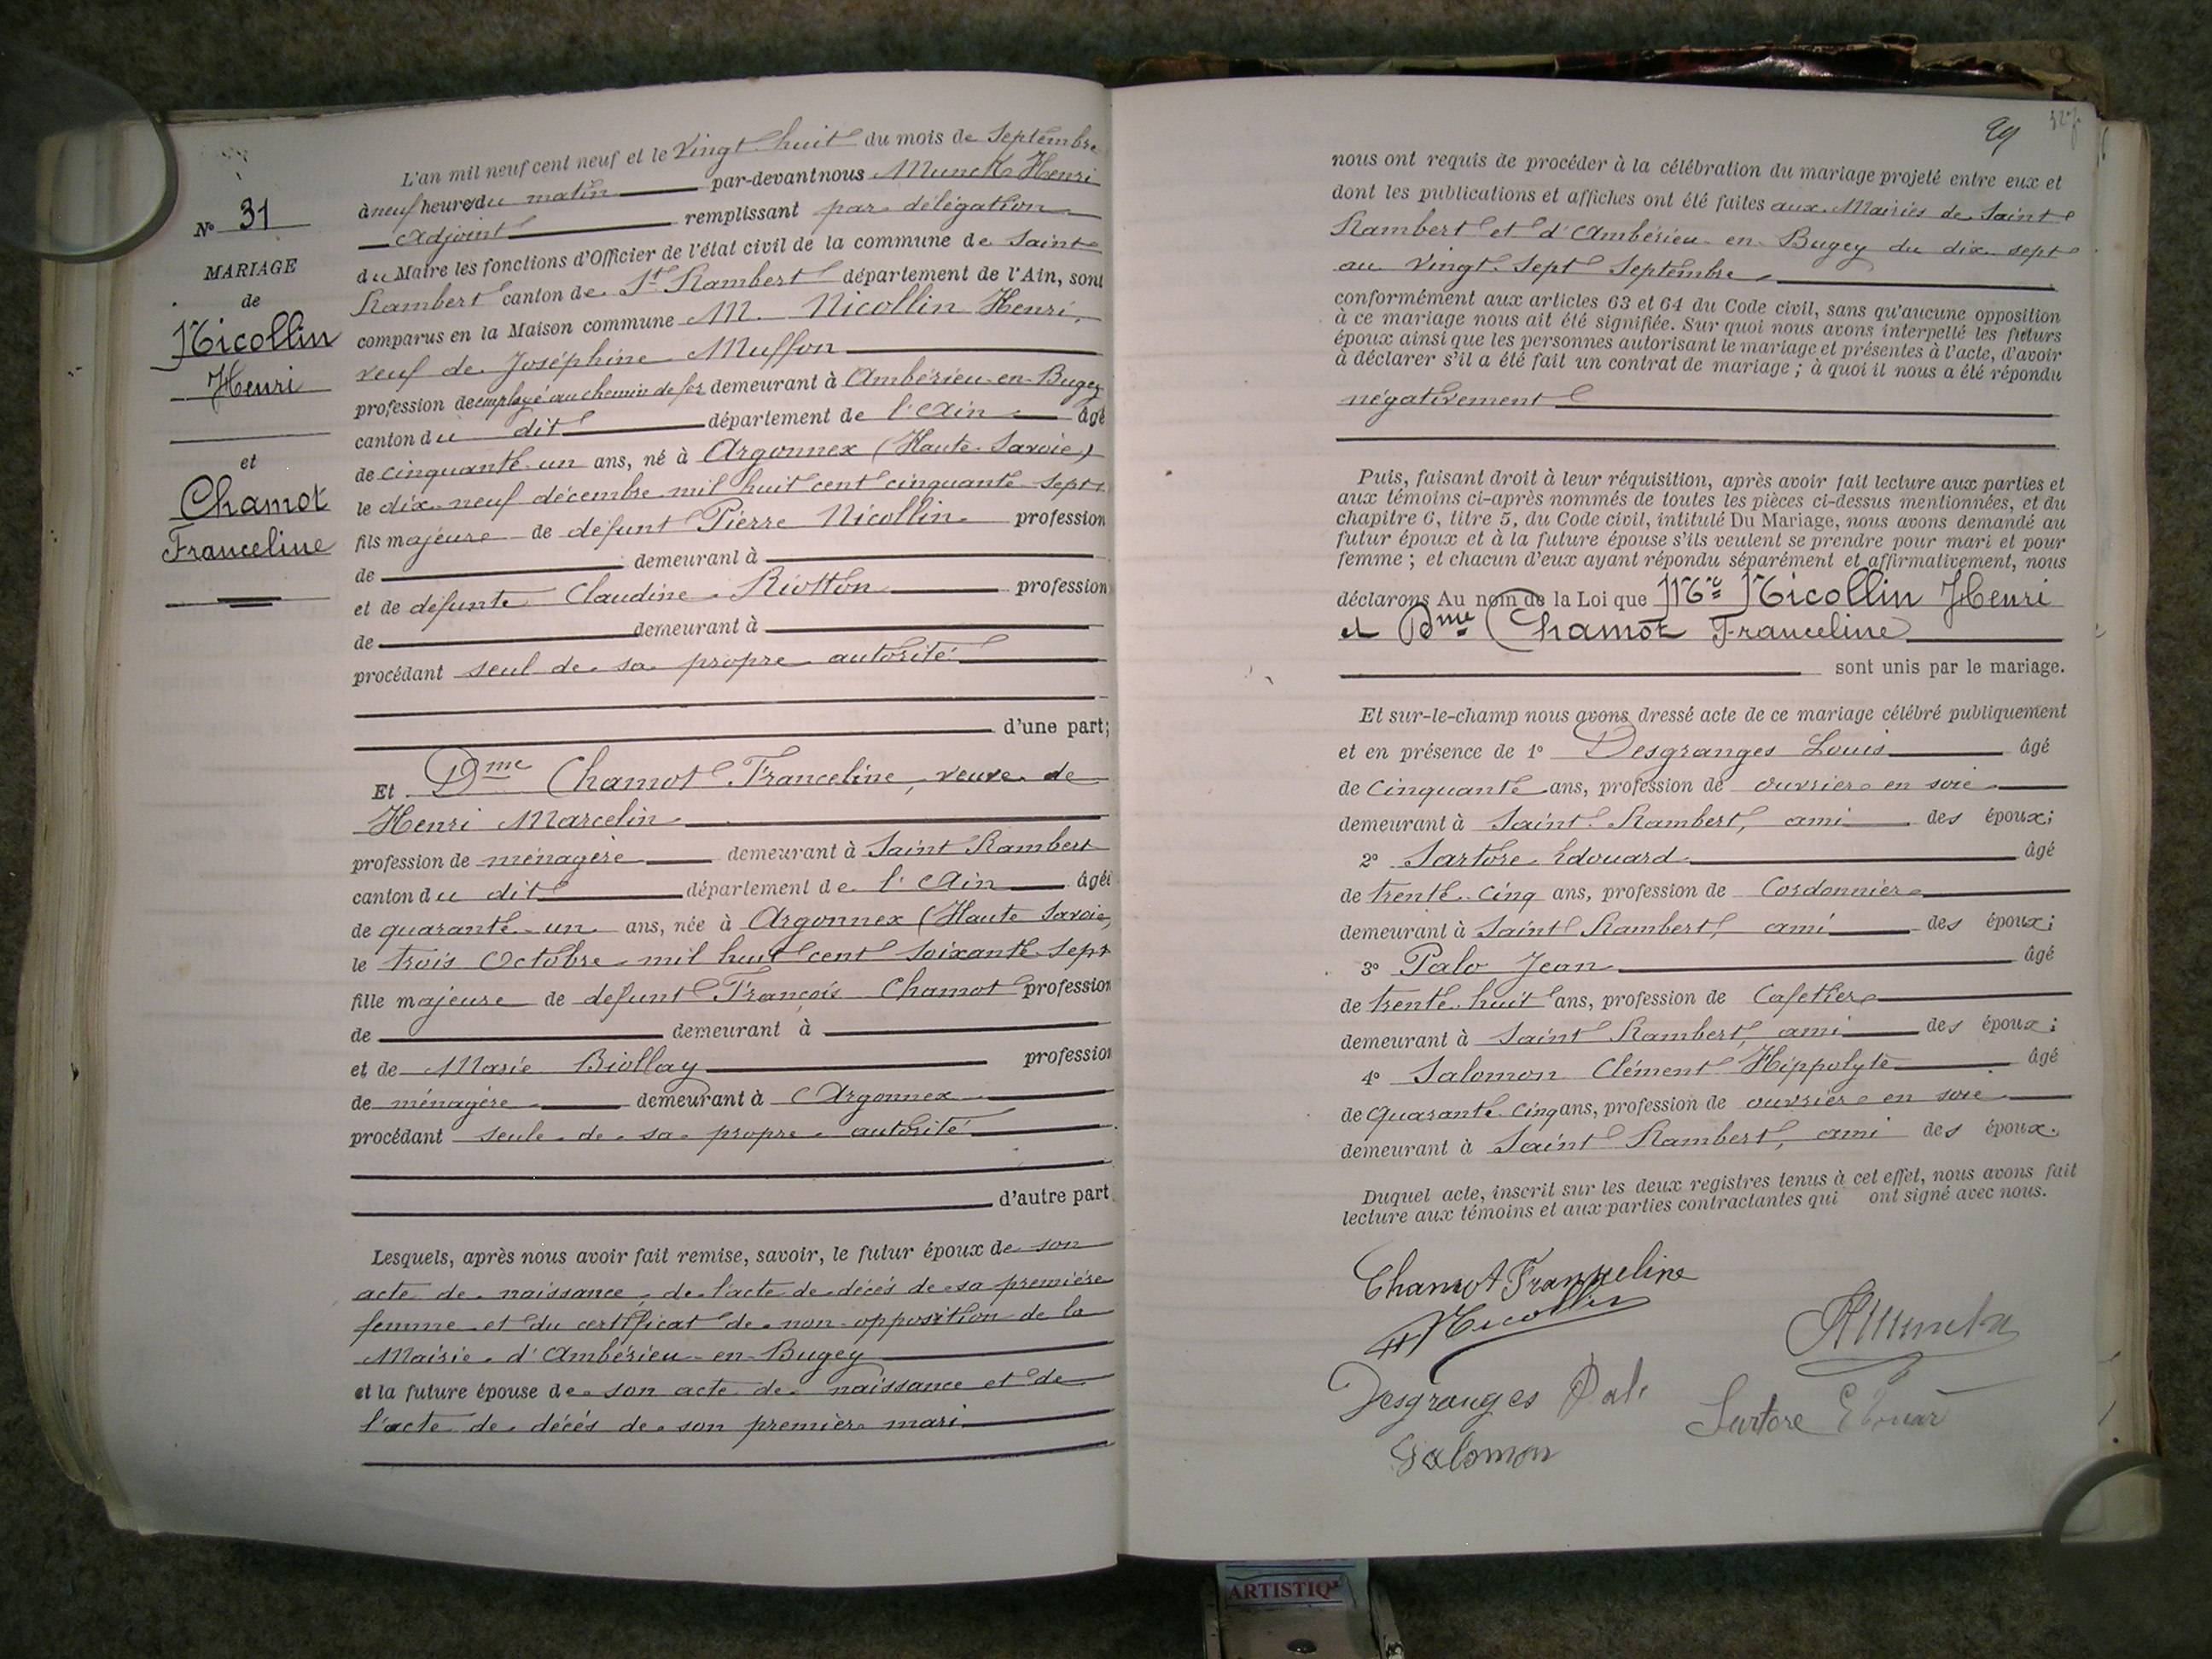 L'an mil neuf cent neuf et le Vingt huit du mois de Septembre
à neuf heures du matin par-devant nous Munck Henri
Adjoint remplissant par délégation
du Maire les fonctions d'Officier de l'état civil de la commune de Saint
Rambert canton de St Rambert département de l'Ain, sont
comparus en la Maison commune M. Nicollin Henri,
veuf de Joséphine Muffon
profession de employé au chemin de fer demeurant à Ambérieu-en-Bugey
canton du dit département de l'Ain âgé
de cinquante un ans, né à Argonnex (Haute-Savoie)
le dix-neuf décembre mil huit cent cinquante-sept
fils majeur de défunt Pierre Nicollin profession
de demeurant à
et de défunte Claudine Riotton profession
de demeurant à
procédant seul de sa propre autorité
d'une part;
Et Dme Chamot Franceline, veuve de
Henri Marcelin
profession de ménagère demeurant à Saint Rambert
canton du dit département de l'Ain âgée
de quarante-un ans, née à Argonnex (Haute Savoie)
le trois Octobre mil huit cent soixante-sept
fille majeure de défunt François Chamot profession
de demeurant à
et de Marie Biollay profession
de ménagère demeurant à Argonnex
procédant seule de sa propre autorité
d'autre part
Lesquels, après nous avoir fait remise, savoir, le futur époux de son
acte de naissance, de l'acte de décés de sa première
femme et du certificat de non-opposition de la
Mairie d'Ambérieu-en-Bugey
et la future épouse de son acte de naissance et de
l'acte de décés de son premier mari
No 31
MARIAGE
de
Nicollin
Henri
et
Chamot
Franceline
29
nous ont requis de procéder à la célébration du mariage projeté entre eux et
dont les publications et affiches ont été faites aux Mairies de Saint
Rambert et d'Ambérieu-en-Bugey du dix sept
au vingt-sept Septembre
conformément aux articles 63 et 64 du Code civil, sans qu'aucune opposition
à ce mariage nous ait été signifiée. Sur quoi nous avons interpellé les futurs
époux ainsi que les personnes autorisant le mariage et présentes à l'acte, d'avoir
à déclarer s'il a été fait un contrat de mariage ; à quoi il nous a été répondu
négativement
Puis, faisant droit à leur réquisition, après avoir fait lecture aux parties et
aux témoins ci-après nommés de toutes les pièces ci-dessus mentionnées, et du
chapitre 6, titre 5, du Code civil, intitulé Du Mariage, nous avons demandé au
futur époux et à la future épouse s'ils veulent se prendre pour mari et pour
femme ; et chacun d'eux ayant répondu séparément et affirmativement, nous
déclarons Au nom de la Loi que Mr Nicollin Henri
et Dme Chamot Franceline
sont unis par le mariage.
Et sur-le-champ nous avons dressé acte de ce mariage célébré publiquement
et en présence de 1o Desgranges Louis âgé
de Cinquante ans, profession de ouvrier en soie
demeurant à Saint-Rambert, ami des époux;
2o Sartore Edouard âgé
de trente-cinq ans, profession de Cordonnier
demeurant à Saint Rambert, ami des époux;
3o Palo Jean âgé
de trente-huit ans, profession de Cafetier
demeurant à Saint Rambert, ami des époux;
4o Salomon Clément Hippolyte âgé
de Quarante-cinq ans, profession de ouvrier en soie
demeurant à Saint Rambert, ami des époux.
Duquel acte, inscrit sur les deux registres tenus à cet effet, nous avons fait
lecture aux témoins et aux parties contractantes qui ont signé avec nous.
Chamot Franceline
Nicollin
HMunck
Desgranges Palo
Sartore Edouar
Salomon
ARTISTIQ